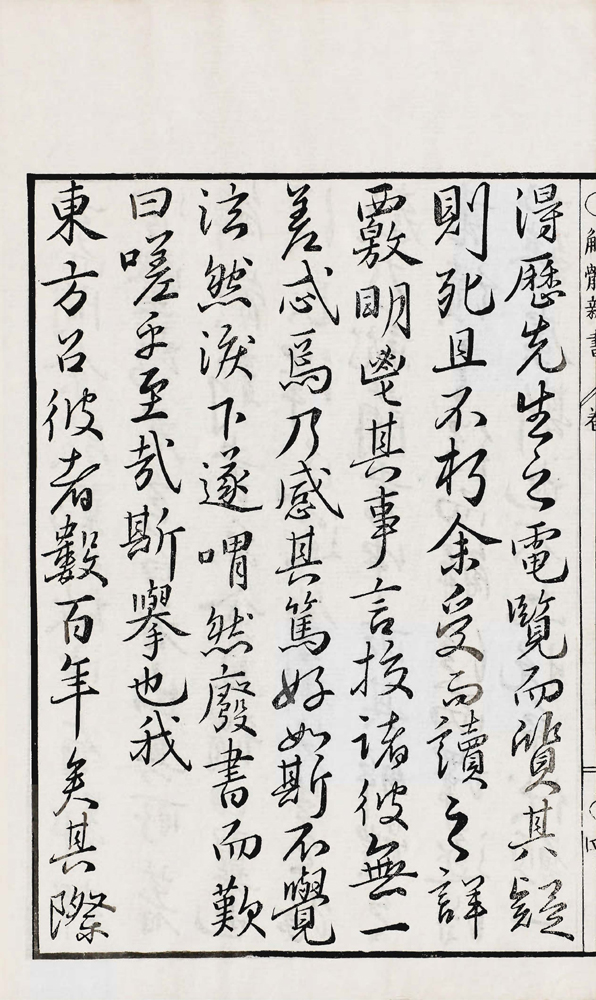 解體新書
得歷先生之電覽而質其疑
則死且不朽余受而讀之詳
覈明鬯其事言校諸彼無一
差忒焉乃感其篤好如斯不覺
泫然淚下遂喟然廢書而歎
曰嗟乎至哉斯擧也我
東方召彼者數百年矣其際